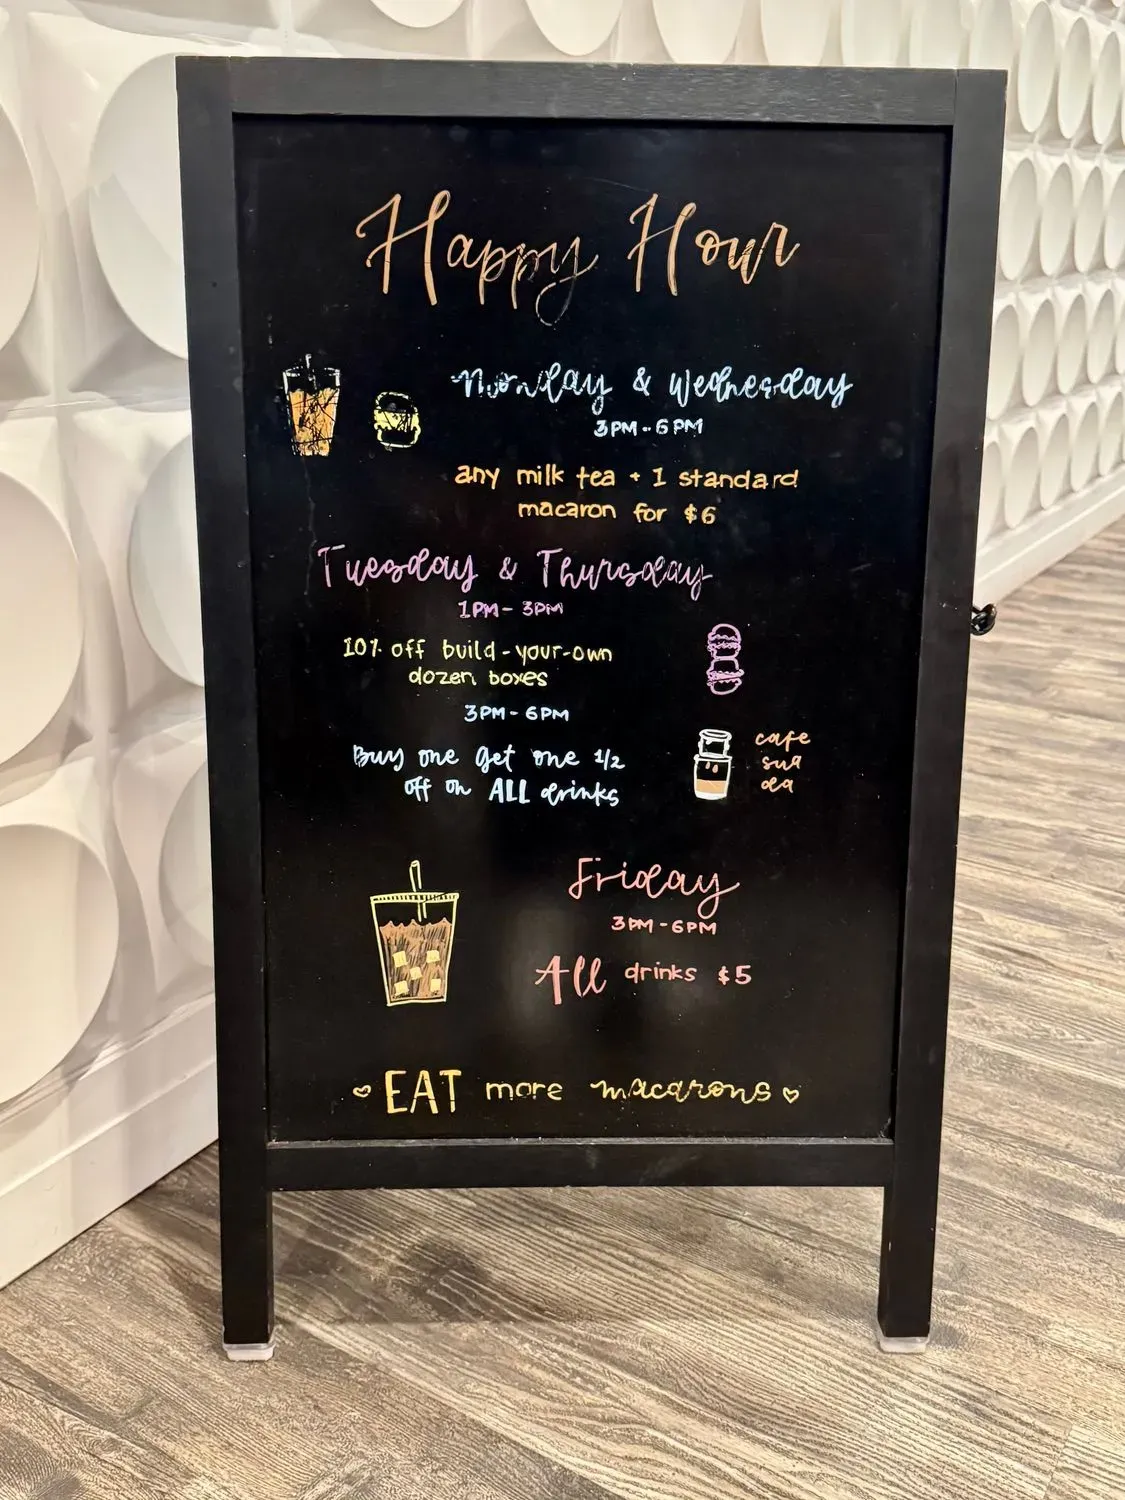 Happy Hour
Monday & Wednesday
3PM - 6PM
any milk tea + 1 standard
macaron for $6
Tuesday & Thursday
1PM - 3PM
10% off build-your-own
dozen boxes
3PM - 6PM
Buy one get one 1/2
off on ALL drinks
cafe
sua
da
Friday
3PM - 6PM
All drinks $5
EAT more macarons